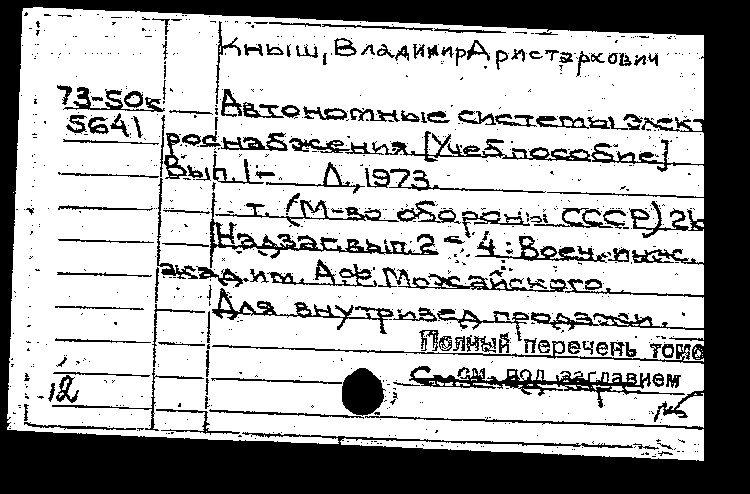 Кныш, Владимир Аристархович
73-50к
5641
Автономные системы элект
роснабжения. [Учеб. пособие].
Вып. 1- Л., 1973.
т. (М-во обороны СССР) 2к
Надзаг. вып. 2-4: Воен. инж.
акад. им. А. Ф. Можайского.
Для внутривед. продажи.
Полный перечень томо
см. под заглавием
12